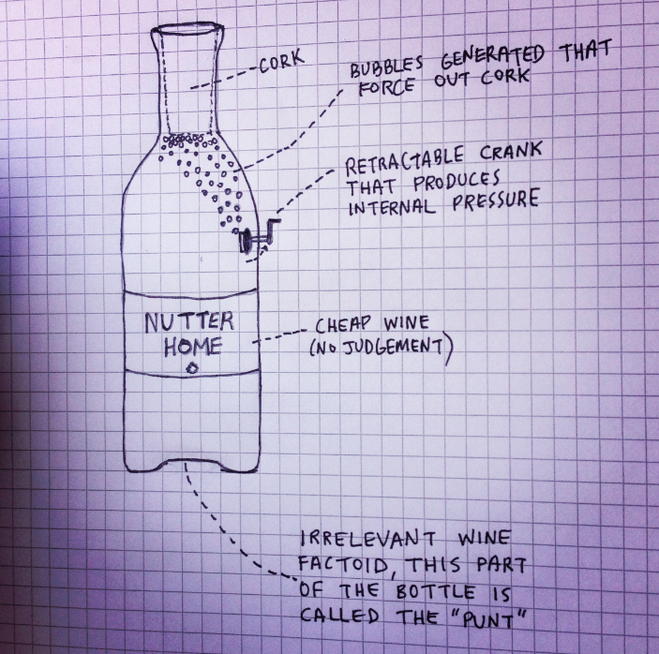 CORK
BUBBLES GENERATED THAT
FORCE OUT CORK
RETRACTABLE CRANK
THAT PRODUCES
INTERNAL PRESSURE
NUTTER
HOME
CHEAP WINE
(NO JUDGEMENT)
IRRELEVANT WINE
FACTOID, THIS PART
OF THE BOTTLE IS
CALLED THE "PUNT"